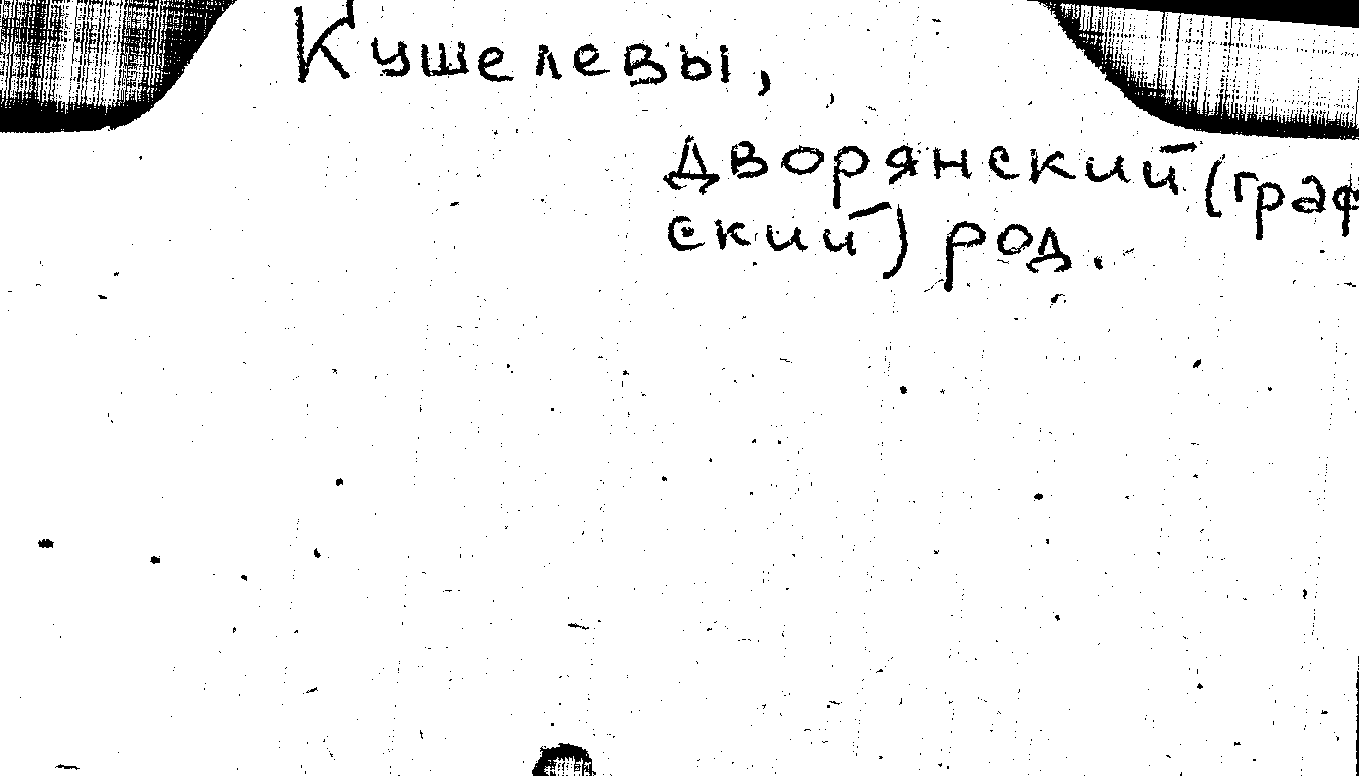 Кушелевы,
дворянский (граф
ский) род.